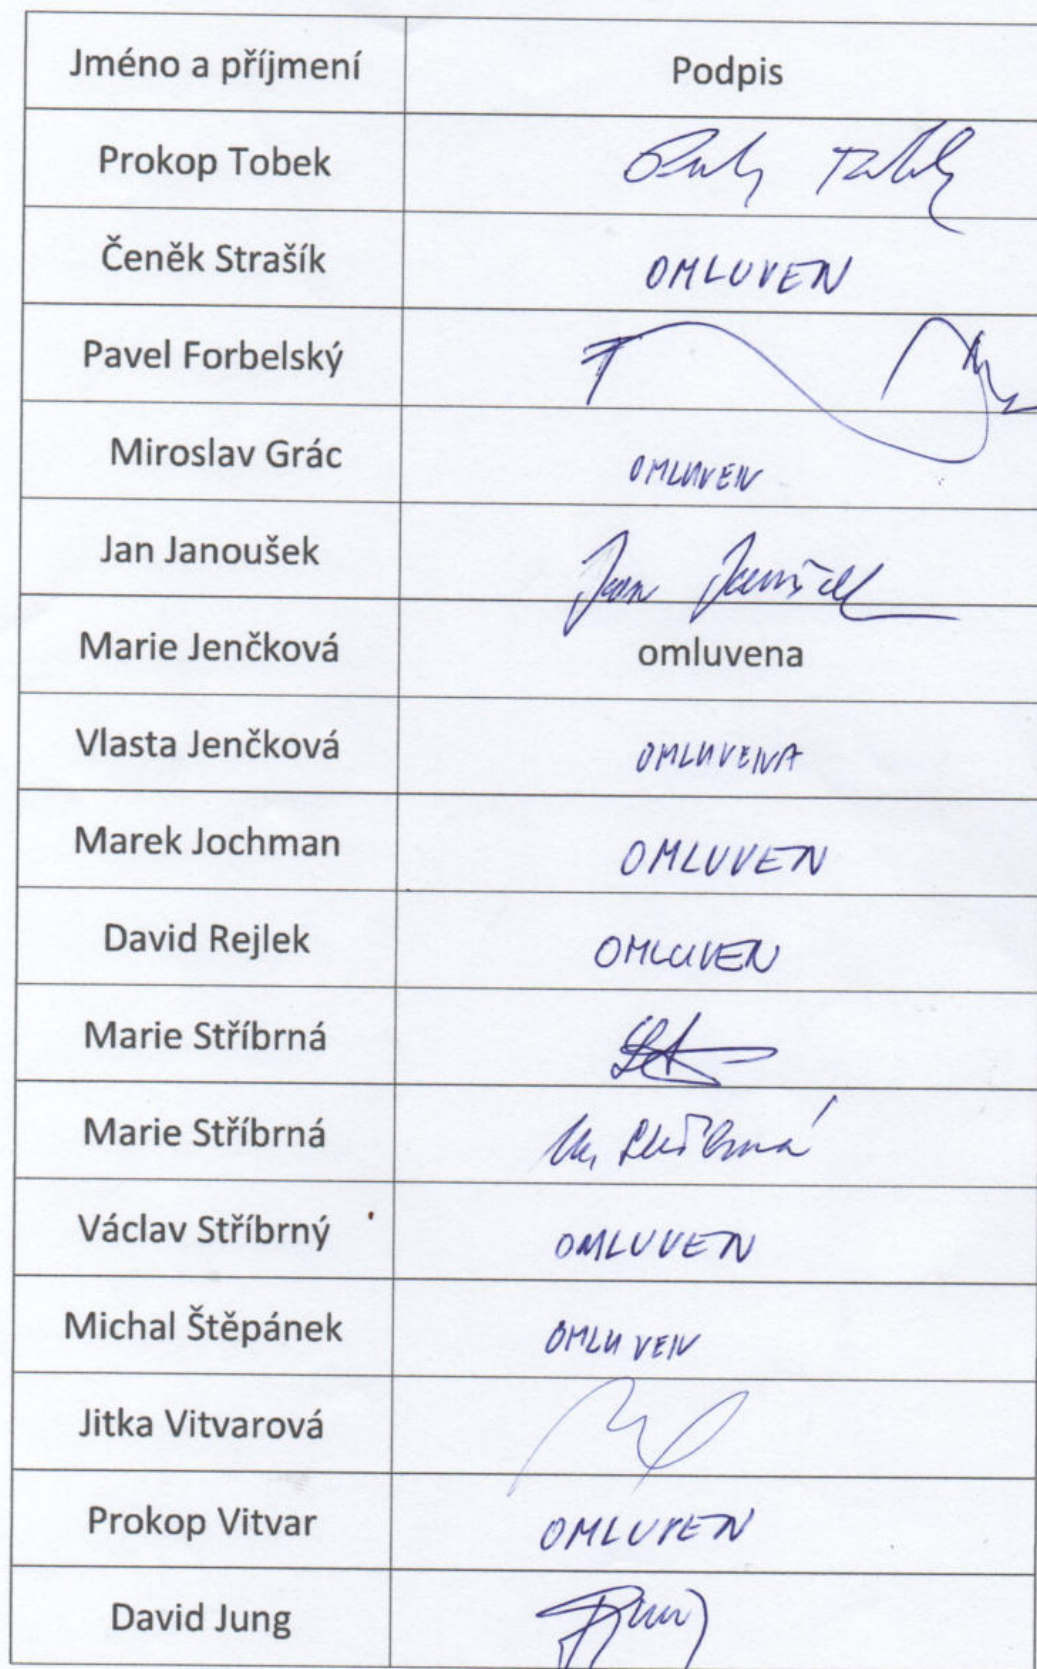 Jméno a příjmení Podpis
Prokop Tobek
Čeněk Strašík OMLUVEN
Pavel Forbelský
Miroslav Grác OMLUVEN
Jan Janoušek Jan Janoušek
Marie Jenčková omluvena
Vlasta Jenčková OMLUVENA
Marek Jochman OMLUVEN
David Rejlek OMLUVEN
Marie Stříbrná
Marie Stříbrná M. Stříbrná
Václav Stříbrný OMLUVEN
Michal Štěpánek OMLUVEN
Jitka Vitvarová
Prokop Vitvar OMLUVEN
David Jung